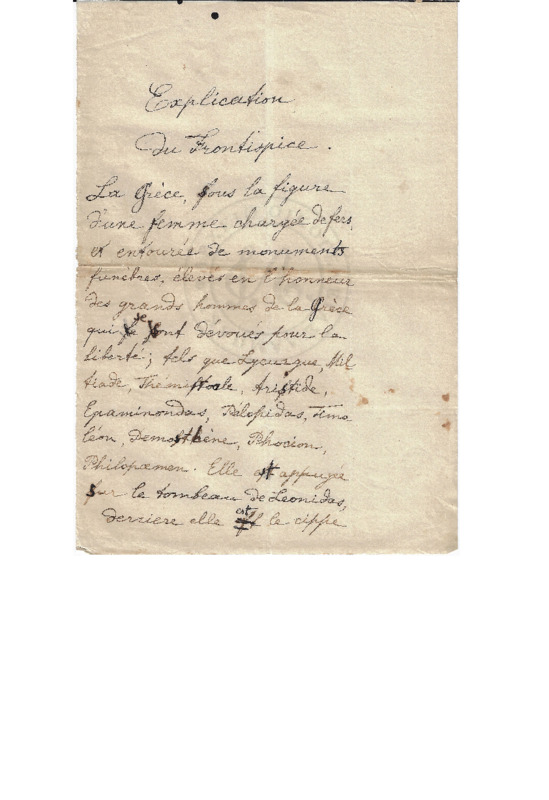 Explication
du Frontispice.
La Grèce, sous la figure
d'une femme chargée de fers,
et entourée de monuments
funèbres, élevés en l'honneur
des grands hommes de la Grèce
qui se sont dévoués pour la
liberté; tels que Lycurgue, Mil
tiade, Themistocle, Aristide,
Epaminondas, Pélopidas, Timo
léon, Demosthène, Phocion,
Philopœmen. Elle est appuyée
sur le tombeau de Leonidas,
derriere elle est le cippe